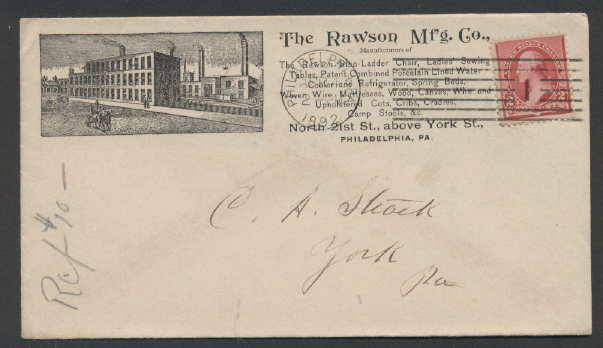 The Rawson M'f'g. Co.,
Manufacturers of
The Rawson Step-Ladder Chair, Ladies' Sewing
Tables, Patent Combined Porcelain Lined Water
Cooler and Refrigerator, Spring Beds,
Woven Wire Mattresses, Wood, Canvas, Wire and
Upholstered Cots, Cribs, Cradles,
Camp Stools, &c.
North 21st St., above York St.,
PHILADELPHIA, PA.
PHILADELPHIA
1892
1
C. A. Strack
York
Pa
Ref #10 —